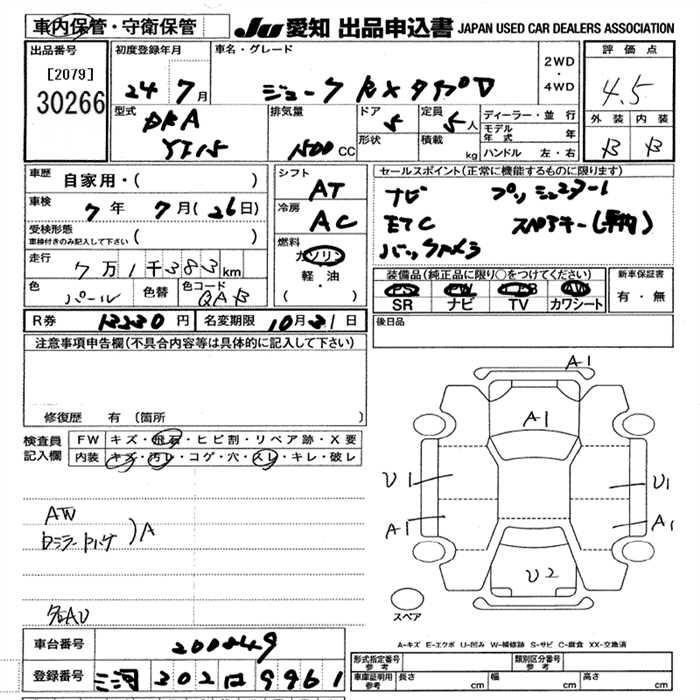 車内保管・守衛保管
JU 愛知 出品申込書 JAPAN USED CAR DEALERS ASSOCIATION
出品番号
[2079]
30266
初度登録年月
24 7月
車名・グレード
ジューク RX タイプV
2WD
・
4WD
評価点
4.5
外装 内装
B B
型式
DBA
YF15
排気量
1500 CC
ドア
5
形状
定員
5 人
積載
kg
ディーラー・並行
モデル年式 年
ハンドル 左・右
車歴 自家用・( )
車検 7年 7月(26日)
受検形態
車検付きのみ記入して下さい ( )
走行 7万1千383km
色 パール 色替 色コード QAB
シフト
AT
冷房
AC
燃料
ガソリン
軽・油
( )
セールスポイント(正常に機能するものに限ります)
ナビ プッシュスタート
ETC
バックカメラ
装備品(純正品に限り○をつけてください)
PS PW AW
SR ナビ TV カワシート
新車保証書
有・無
R券 13230円 名変期限 10月31日
後日品
注意事項申告欄(不具合内容等は具体的に記入して下さい)
修復歴 有 (箇所 )
検査員記入欄
FW キズ・飛石・ヒビ割・リペア跡・X要
内装 キズ・汚レ・コゲ・穴・スレ・キレ・破レ
AW
A
A1
A1
U1
U1
A1
A1
U2
スペア
A-キズ E-エクボ U-凹み W-補修跡 S-サビ C-腐食 XX-交換済
車台番号 200849
登録番号 三河 302 9961
型式指定番号 参考
類別区分番号 参考
車庫証明用 参考 長さ cm 幅 cm 高さ cm